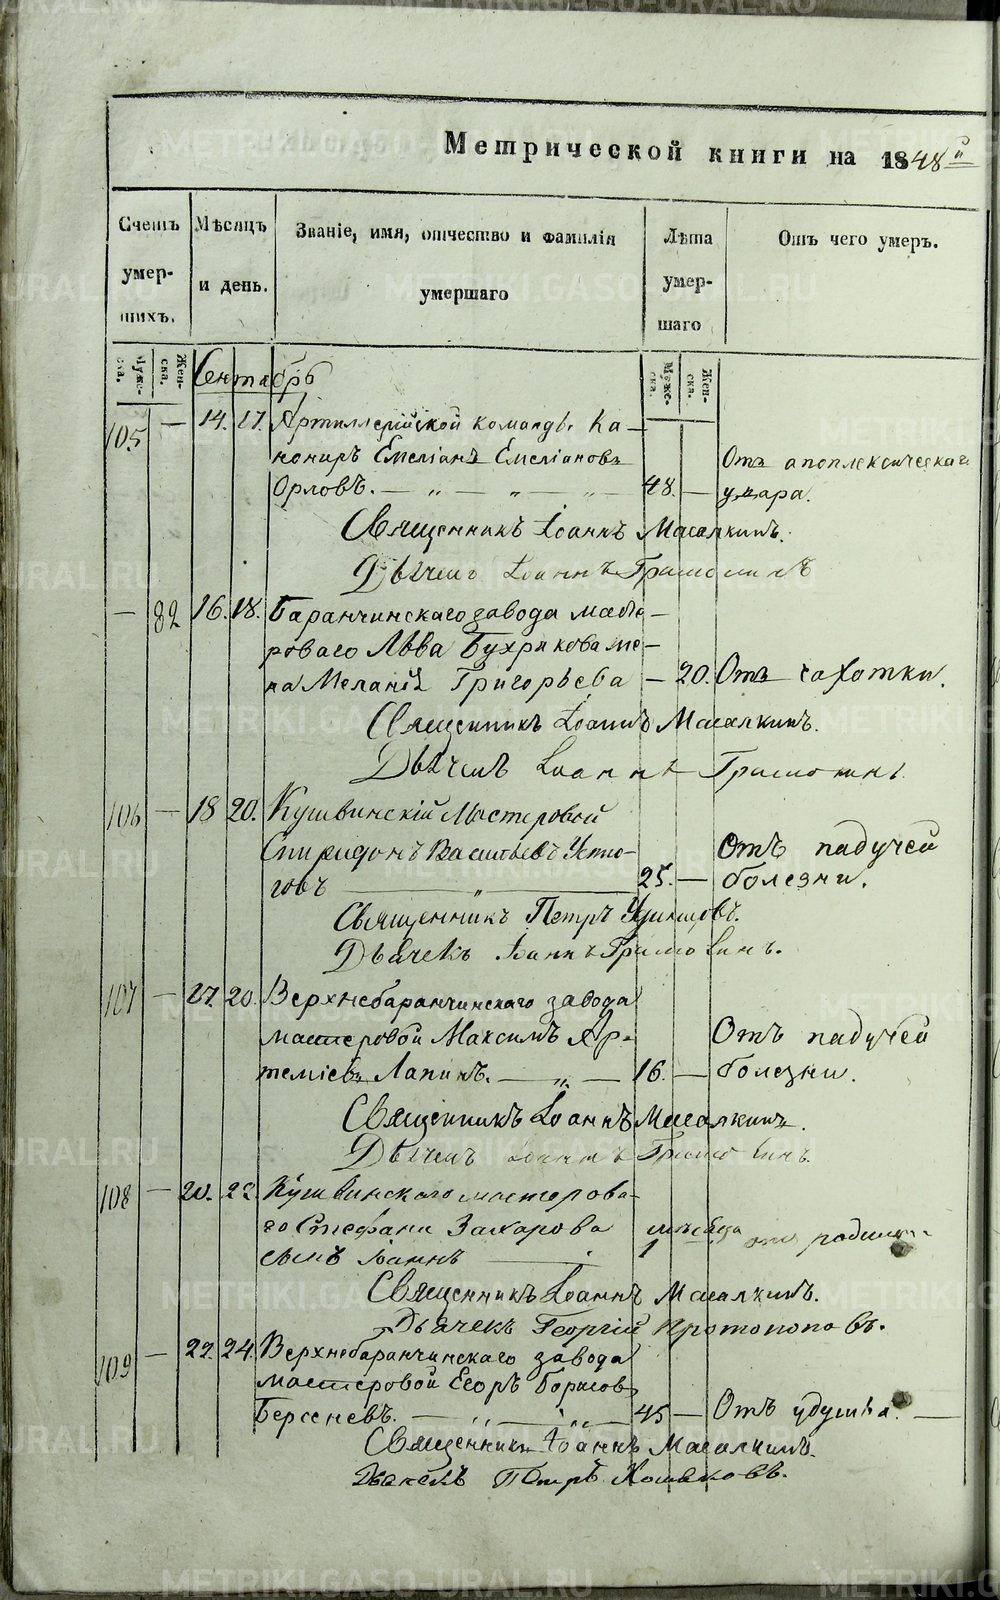 Метрической книги на 1848й
Счетъ умер- шихъ.
Мѣсяцъ и день.
Званіе, имя, отчество и фамилія умершаго
Лѣта умер- шаго
Отъ чего умеръ.
Муже- ска.
Жен- ска.
Муже- ска.
Жен- ска.
Сентябрь
105 — 14. 17. Артиллерійской команды Ка-
нониръ Емеліанъ Емеліановъ
Отъ апоплексическаго
Орловъ. — „ — „ — „ — 48. — удара.
Священникъ Іоаннъ Масалкинъ.
Дьячекъ Іоаннъ
— 82 16. 18. Баранчинскаго завода масте-
роваго Льва Бухрякова же-
на Меланія Григорьева — 20. Отъ чахотки.
Священникъ Іоаннъ Масалкинъ.
Дьячекъ Іоаннъ
106 — 18 20. Кушвинскій Мастеровой
Спиридонъ Васильевъ Устю-
Отъ падучей
говъ — „ — 25. — болезни.
Священникъ Петръ
Дьячекъ Іоаннъ
107 — 17. 20. Верхнебаранчинскаго завода
мастеровой Максимъ Ар-
Отъ падучей
теміевъ Лапинъ. — „ — 16. — болезни.
Священникъ Іоаннъ Масалкинъ.
Дьячекъ Іоаннъ
108 — 20. 22. Кушвинскаго мастерова-
го Стефана Захарова
сынъ Іоаннъ
1 мѣсяца
отъ
Священникъ Іоаннъ Масалкинъ.
Дьячекъ Георгій Протопоповъ.
109 — 22. 24. Верхнебаранчинскаго завода
мастеровой Егоръ Борисовъ
Берсеневъ. — „ — „ — 45 — Отъ удушья. —
Священникъ Іоаннъ Масалкинъ
Дьячекъ Петръ
METRIKI.GASO-URAL.RU